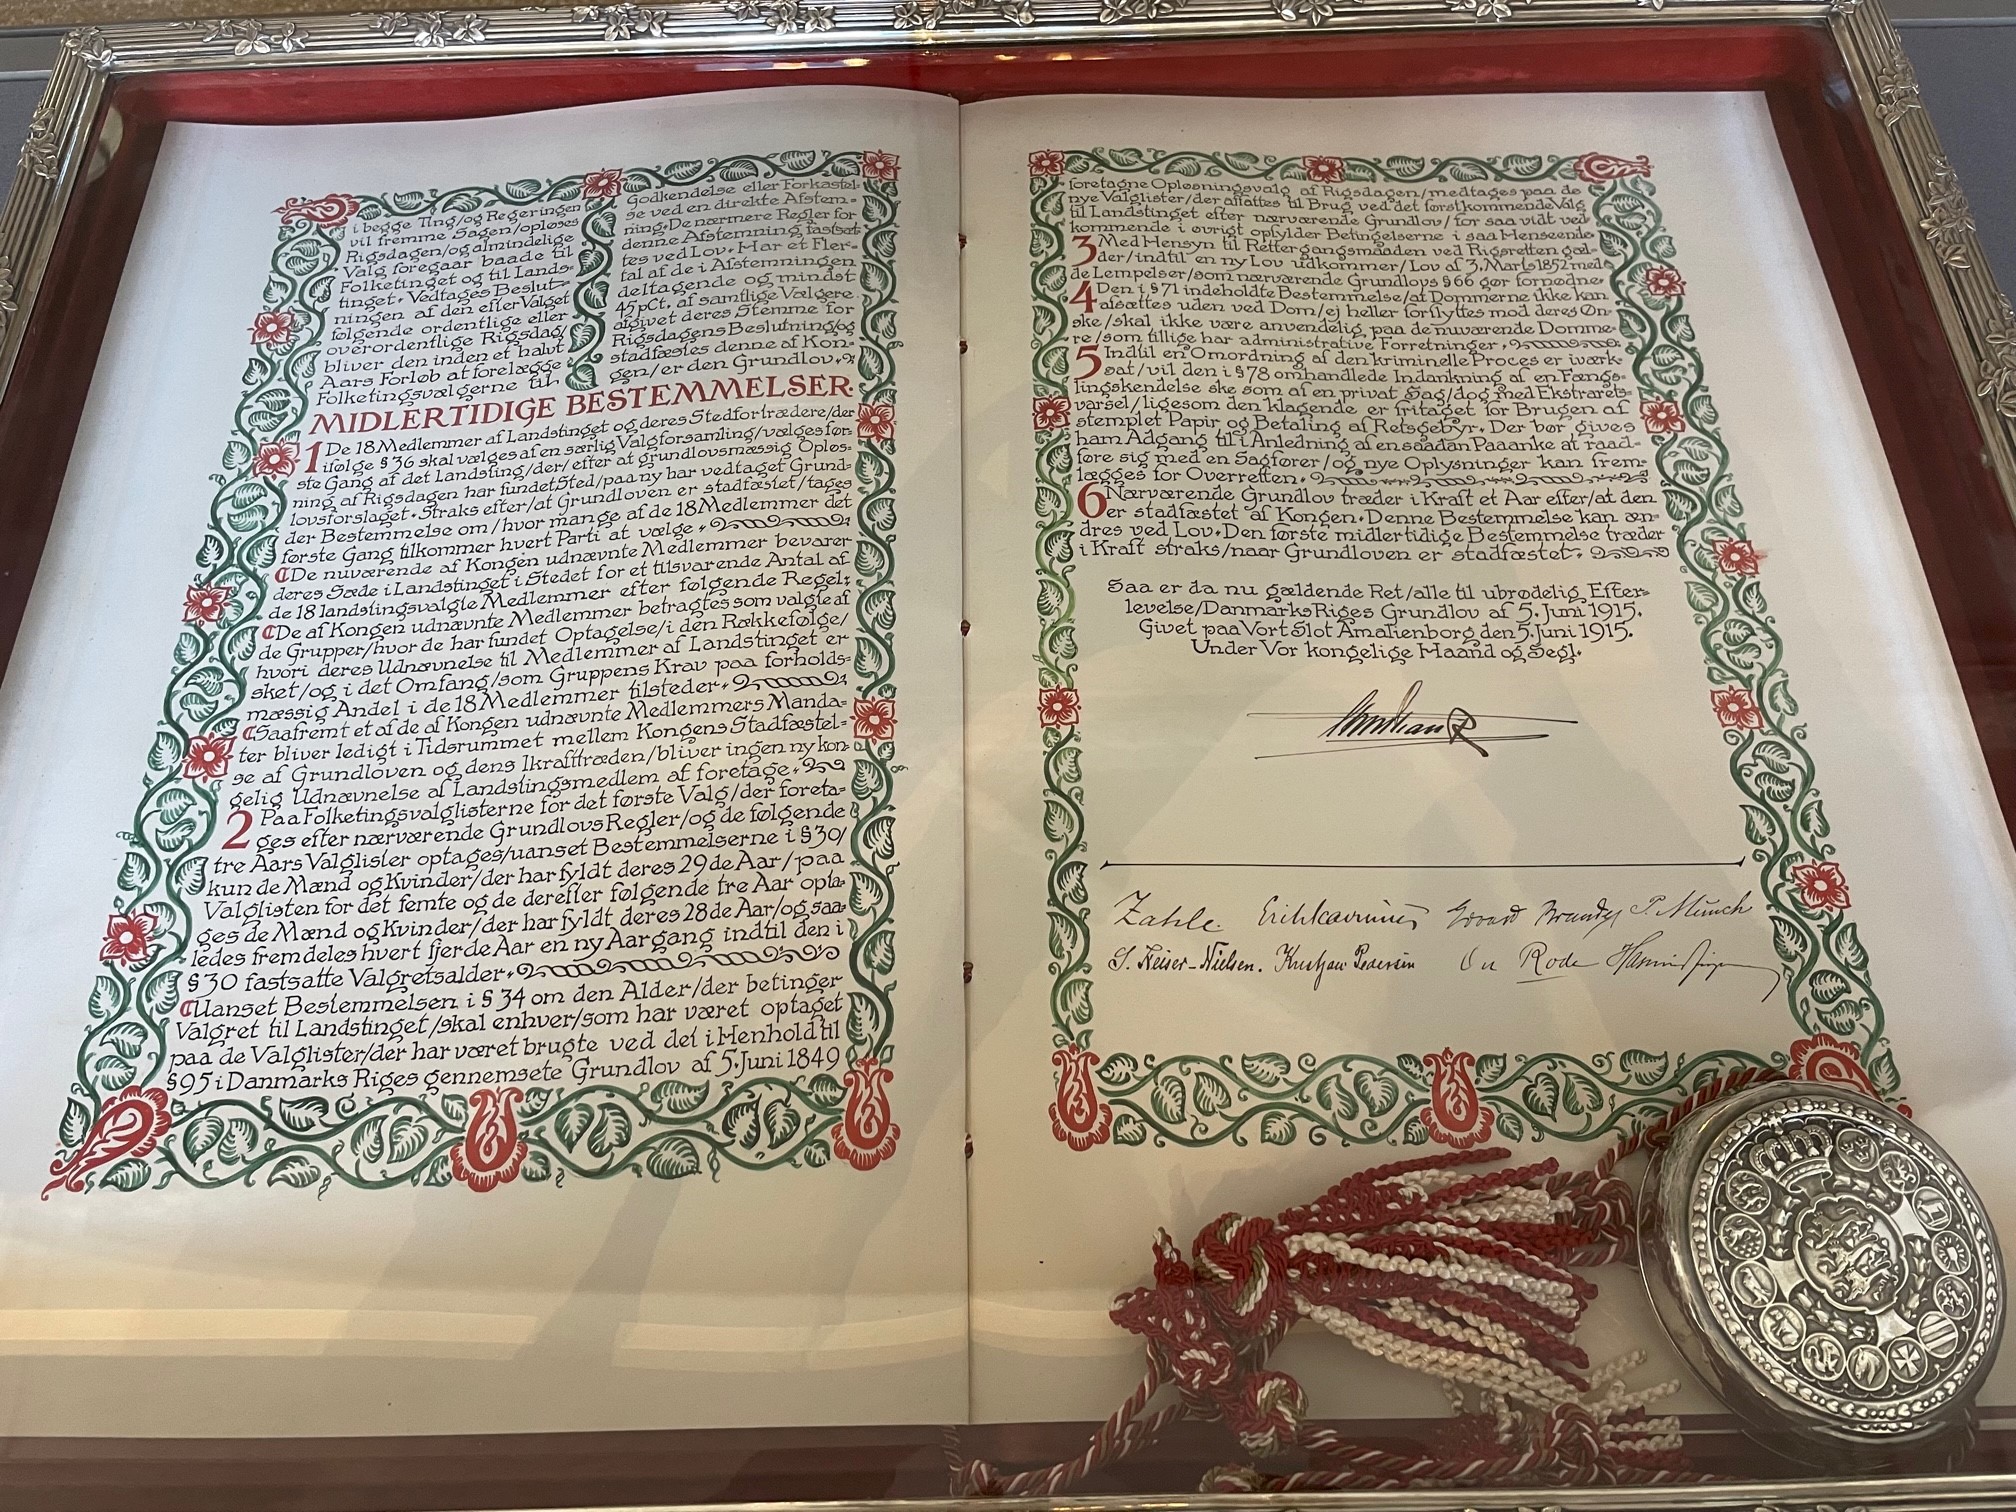 i begge Ting/og Regeringen
vil fremme Sagen/opløses
Rigsdagen/og almindelige
Valg foregaar baade til
Folketinget og til Lands=
tinget. Vedtages Beslut=
ningen af den efter Valget
følgende ordentlige eller
overordentlige Rigsdag/
bliver den inden et halvt
Aars Forløb at forelægge
Folketingsvælgerne til
Godkendelse eller Forkastel=
se ved en direkte Afstem=
ning. De nærmere Regler for
denne Afstemning fastsæt=
tes ved Lov. Har et Fler=
tal af de i Afstemningen
deltagende og mindst
45 pCt. af samtlige Vælgere
afgivet deres Stemme for
Rigsdagens Beslutning/og
stadfæstes denne af Kon=
gen/er den Grundlov.
MIDLERTIDIGE BESTEMMELSER.
1 De 18 Medlemmer af Landstinget og deres Stedfortrædere/der
ifølge § 36 skal vælges af en særlig Valgforsamling/vælges før=
ste Gang af det Landsting/der/efter at grundlovsmæssig Opløs=
ning af Rigsdagen har fundet Sted/paa ny har vedtaget Grund=
lovsforslaget. Straks efter/at Grundloven er stadfæstet/tages
der Bestemmelse om/hvor mange af de 18 Medlemmer det
første Gang tilkommer hvert Parti at vælge.
De nuværende af Kongen udnævnte Medlemmer bevarer
deres Sæde i Landstinget i Stedet for et tilsvarende Antal af
de 18 landstingsvalgte Medlemmer efter følgende Regel:
De af Kongen udnævnte Medlemmer betragtes som valgte af
de Grupper/hvor de har fundet Optagelse/i den Rækkefølge/
hvori deres Udnævnelse til Medlemmer af Landstinget er
sket/og i det Omfang/som Gruppens Krav paa forholds=
mæssig Andel i de 18 Medlemmer tilsteder.
Saafremt et af de af Kongen udnævnte Medlemmers Manda=
ter bliver ledigt i Tidsrummet mellem Kongens Stadfæstel=
se af Grundloven og dens Ikrafttræden/bliver ingen ny kon=
gelig Udnævnelse af Landstingsmedlem af foretage.
2 Paa Folketingsvalglisterne for det første Valg/der foreta=
ges efter nærværende Grundlovs Regler/og de følgende
tre Aars Valglister optages/uanset Bestemmelserne i § 30/
kun de Mænd og Kvinder/der har fyldt deres 29de Aar/paa
Valglisten for det femte og de derefter følgende tre Aar opta=
ges de Mænd og Kvinder/der har fyldt deres 28de Aar/og saa=
ledes fremdeles hvert fjerde Aar en ny Aargang indtil den i
§ 30 fastsatte Valgretsalder.
Uanset Bestemmelsen i § 34 om den Alder/der betinger
Valgret til Landstinget/skal enhver/som har været optaget
paa de Valglister/der har været brugte ved det i Henhold til
§ 95 i Danmarks Riges gennemsete Grundlov af 5. Juni 1849
foretagne Opløsningsvalg af Rigsdagen/medtages paa de
nye Valglister/der affattes til Brug ved det førstkommende Valg
til Landstinget efter nærværende Grundlov/for saa vidt ved=
kommende i øvrigt opfylder Betingelserne i saa Henseende.
3 Med Hensyn til Rettergangsmaaden ved Rigsretten gæl=
der/indtil en ny Lov udkommer/Lov af 3. Marts 1852 med
de Lempelser/som nærværende Grundlovs § 66 gør fornødne
4 Den i § 71 indeholdte Bestemmelse/at Dommerne ikke kan
afsættes uden ved Dom/ej heller forflyttes mod deres Øn=
ske/skal ikke være anvendelig paa de nuværende Domme=
re/som tillige har administrative Forretninger.
5 Indtil en Omordning af den kriminelle Proces er iværk=
sat/vil den i § 78 omhandlede Indankning af en Fængs=
lingskendelse ske som af en privat Sag/dog med Ekstraret=
varsel/ligesom den klagende er fritaget for Brugen af
stemplet Papir og Betaling af Retsgebyr. Der bør gives
ham Adgang til i Anledning af en saadan Paaanke at raad=
føre sig med en Sagfører/og nye Oplysninger kan frem=
lægges for Overretten.
6 Nærværende Grundlov træder i Kraft et Aar efter/at den
er stadfæstet af Kongen. Denne Bestemmelse kan æn=
dres ved Lov. Den første midlertidige Bestemmelse træder
i Kraft straks/naar Grundloven er stadfæstet.
Saa er da nu gældende Ret/alle til ubrødelig Efter=
levelse/Danmarks Riges Grundlov af 5. Juni 1915.
Givet paa Vort Slot Amalienborg den 5. Juni 1915.
Under Vor kongelige Haand og Segl.
Christian R
Zahle. Erik Scavenius Edvard Brandes P. Munch
S. Keiser-Nielsen. Kristjan Pedersen Ove Rode